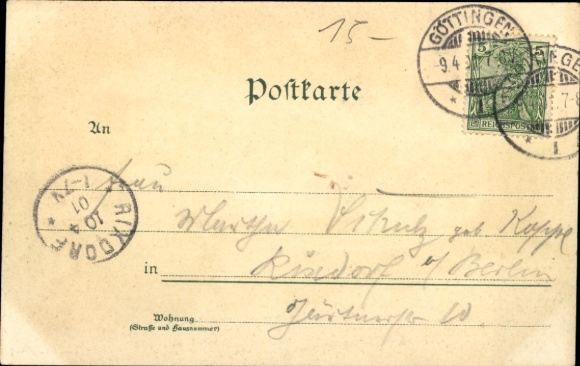 15-
GÖTTINGEN
9.4.
* 1
5 5
REICHSPOST
7-8
* 1
Postkarte
An
Frau
Martha Schulz geb. Koppe
in Rixdorf o/Berlin
Wohnung
(Straße und Hausnummer)
10
RIXDORF
10 4
01
1-2N
*